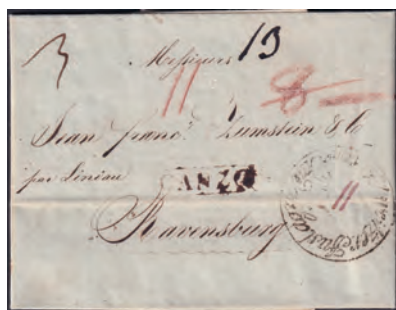 3
Messieurs 13
11
Jean Franc. Zumstein & C
par Lindau
ANZO
11
Ravensburg